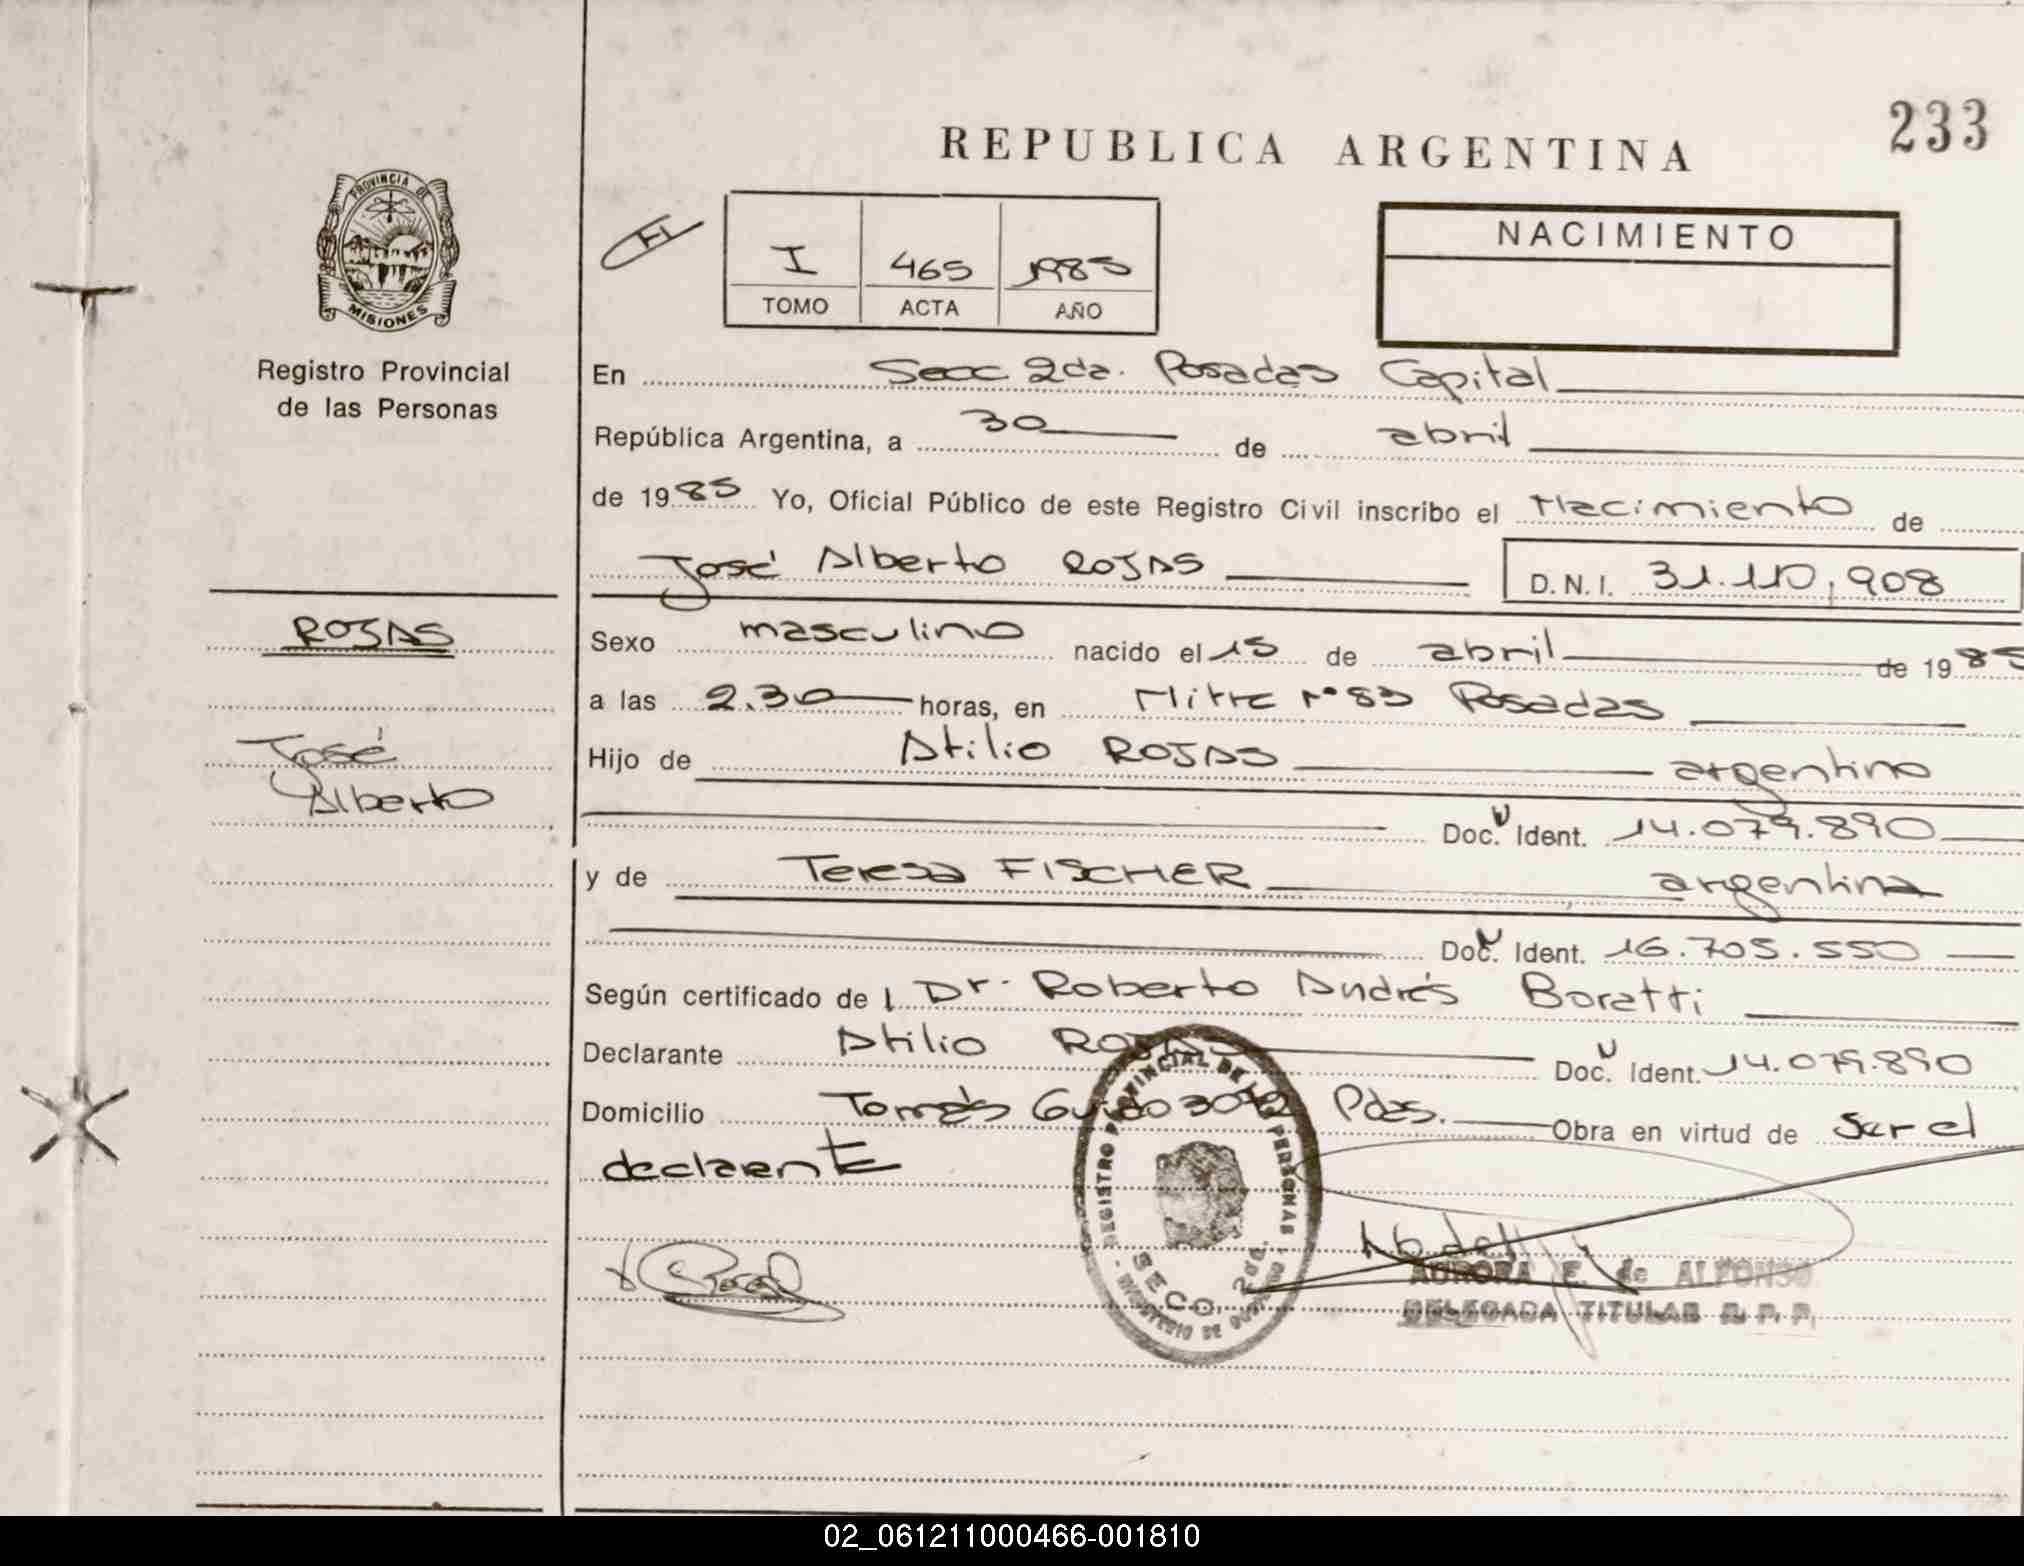 233
REPUBLICA ARGENTINA
PROVINCIA DE
MISIONES
Registro Provincial
de las Personas
I 465 1985
TOMO ACTA AÑO
NACIMIENTO
En Secc 2da. Posadas Capital
República Argentina, a 30 de abril
de 1985 Yo, Oficial Público de este Registro Civil inscribo el Nacimiento de
José Alberto ROJAS D.N.I. 31.110.908
ROJAS
José
Alberto
Sexo masculino nacido el 15 de abril de 1985
a las 2.30 horas, en Mitre Nº 83 Posadas
Hijo de Atilio ROJAS argentino
Doc. Ident. 14.079.890
y de Teresa FISCHER argentina
Doc. Ident. 16.705.550
Según certificado de l Dr. Roberto Andrés Boratti
Declarante Atilio ROJAS Doc. Ident. 14.079.890
Domicilio Tomás Guido 3042 Pdas. Obra en virtud de ser el
declarante
REGISTRO PROVINCIAL DE LAS PERSONAS
SECC. 2da.
MINISTERIO DE GOBIERNO
AURORA E. de ALFONSO
DELEGADA TITULAR R. P. P.
02_061211000466-001810